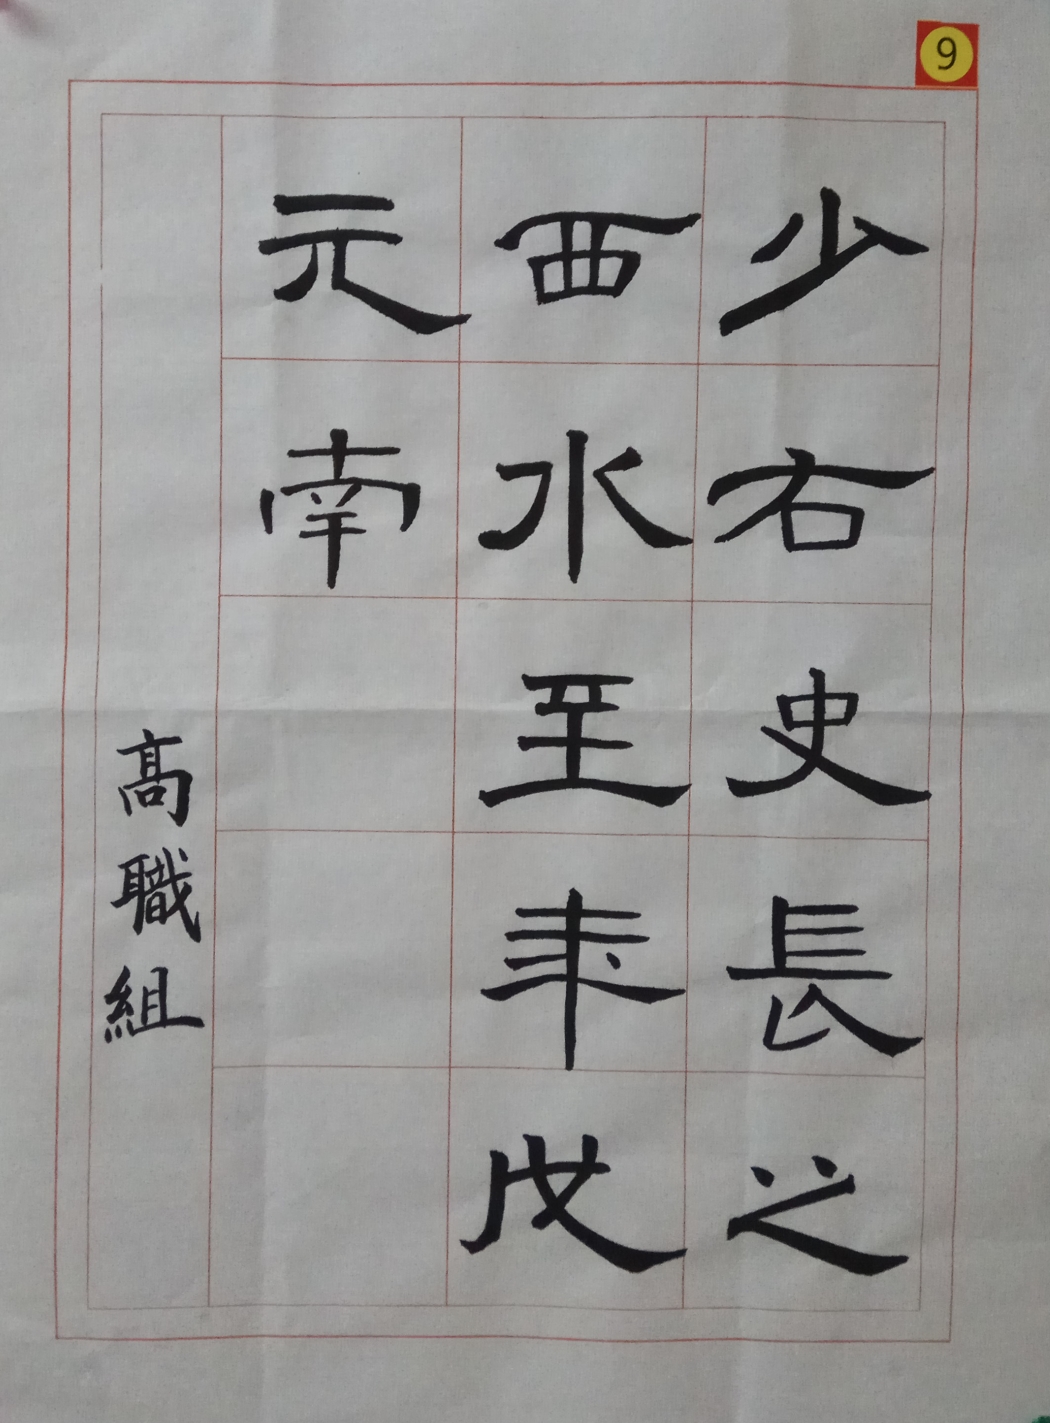 9
少右史長之
西水至年戊
元南
髙職組